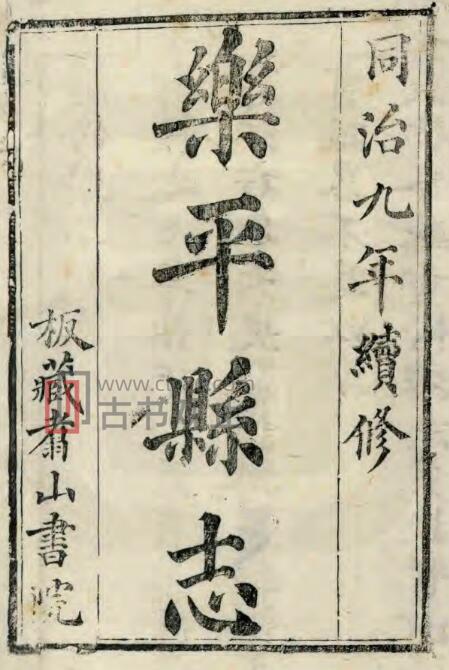 同治九年續修
樂平縣志
板藏翥山書院
www.c
古书